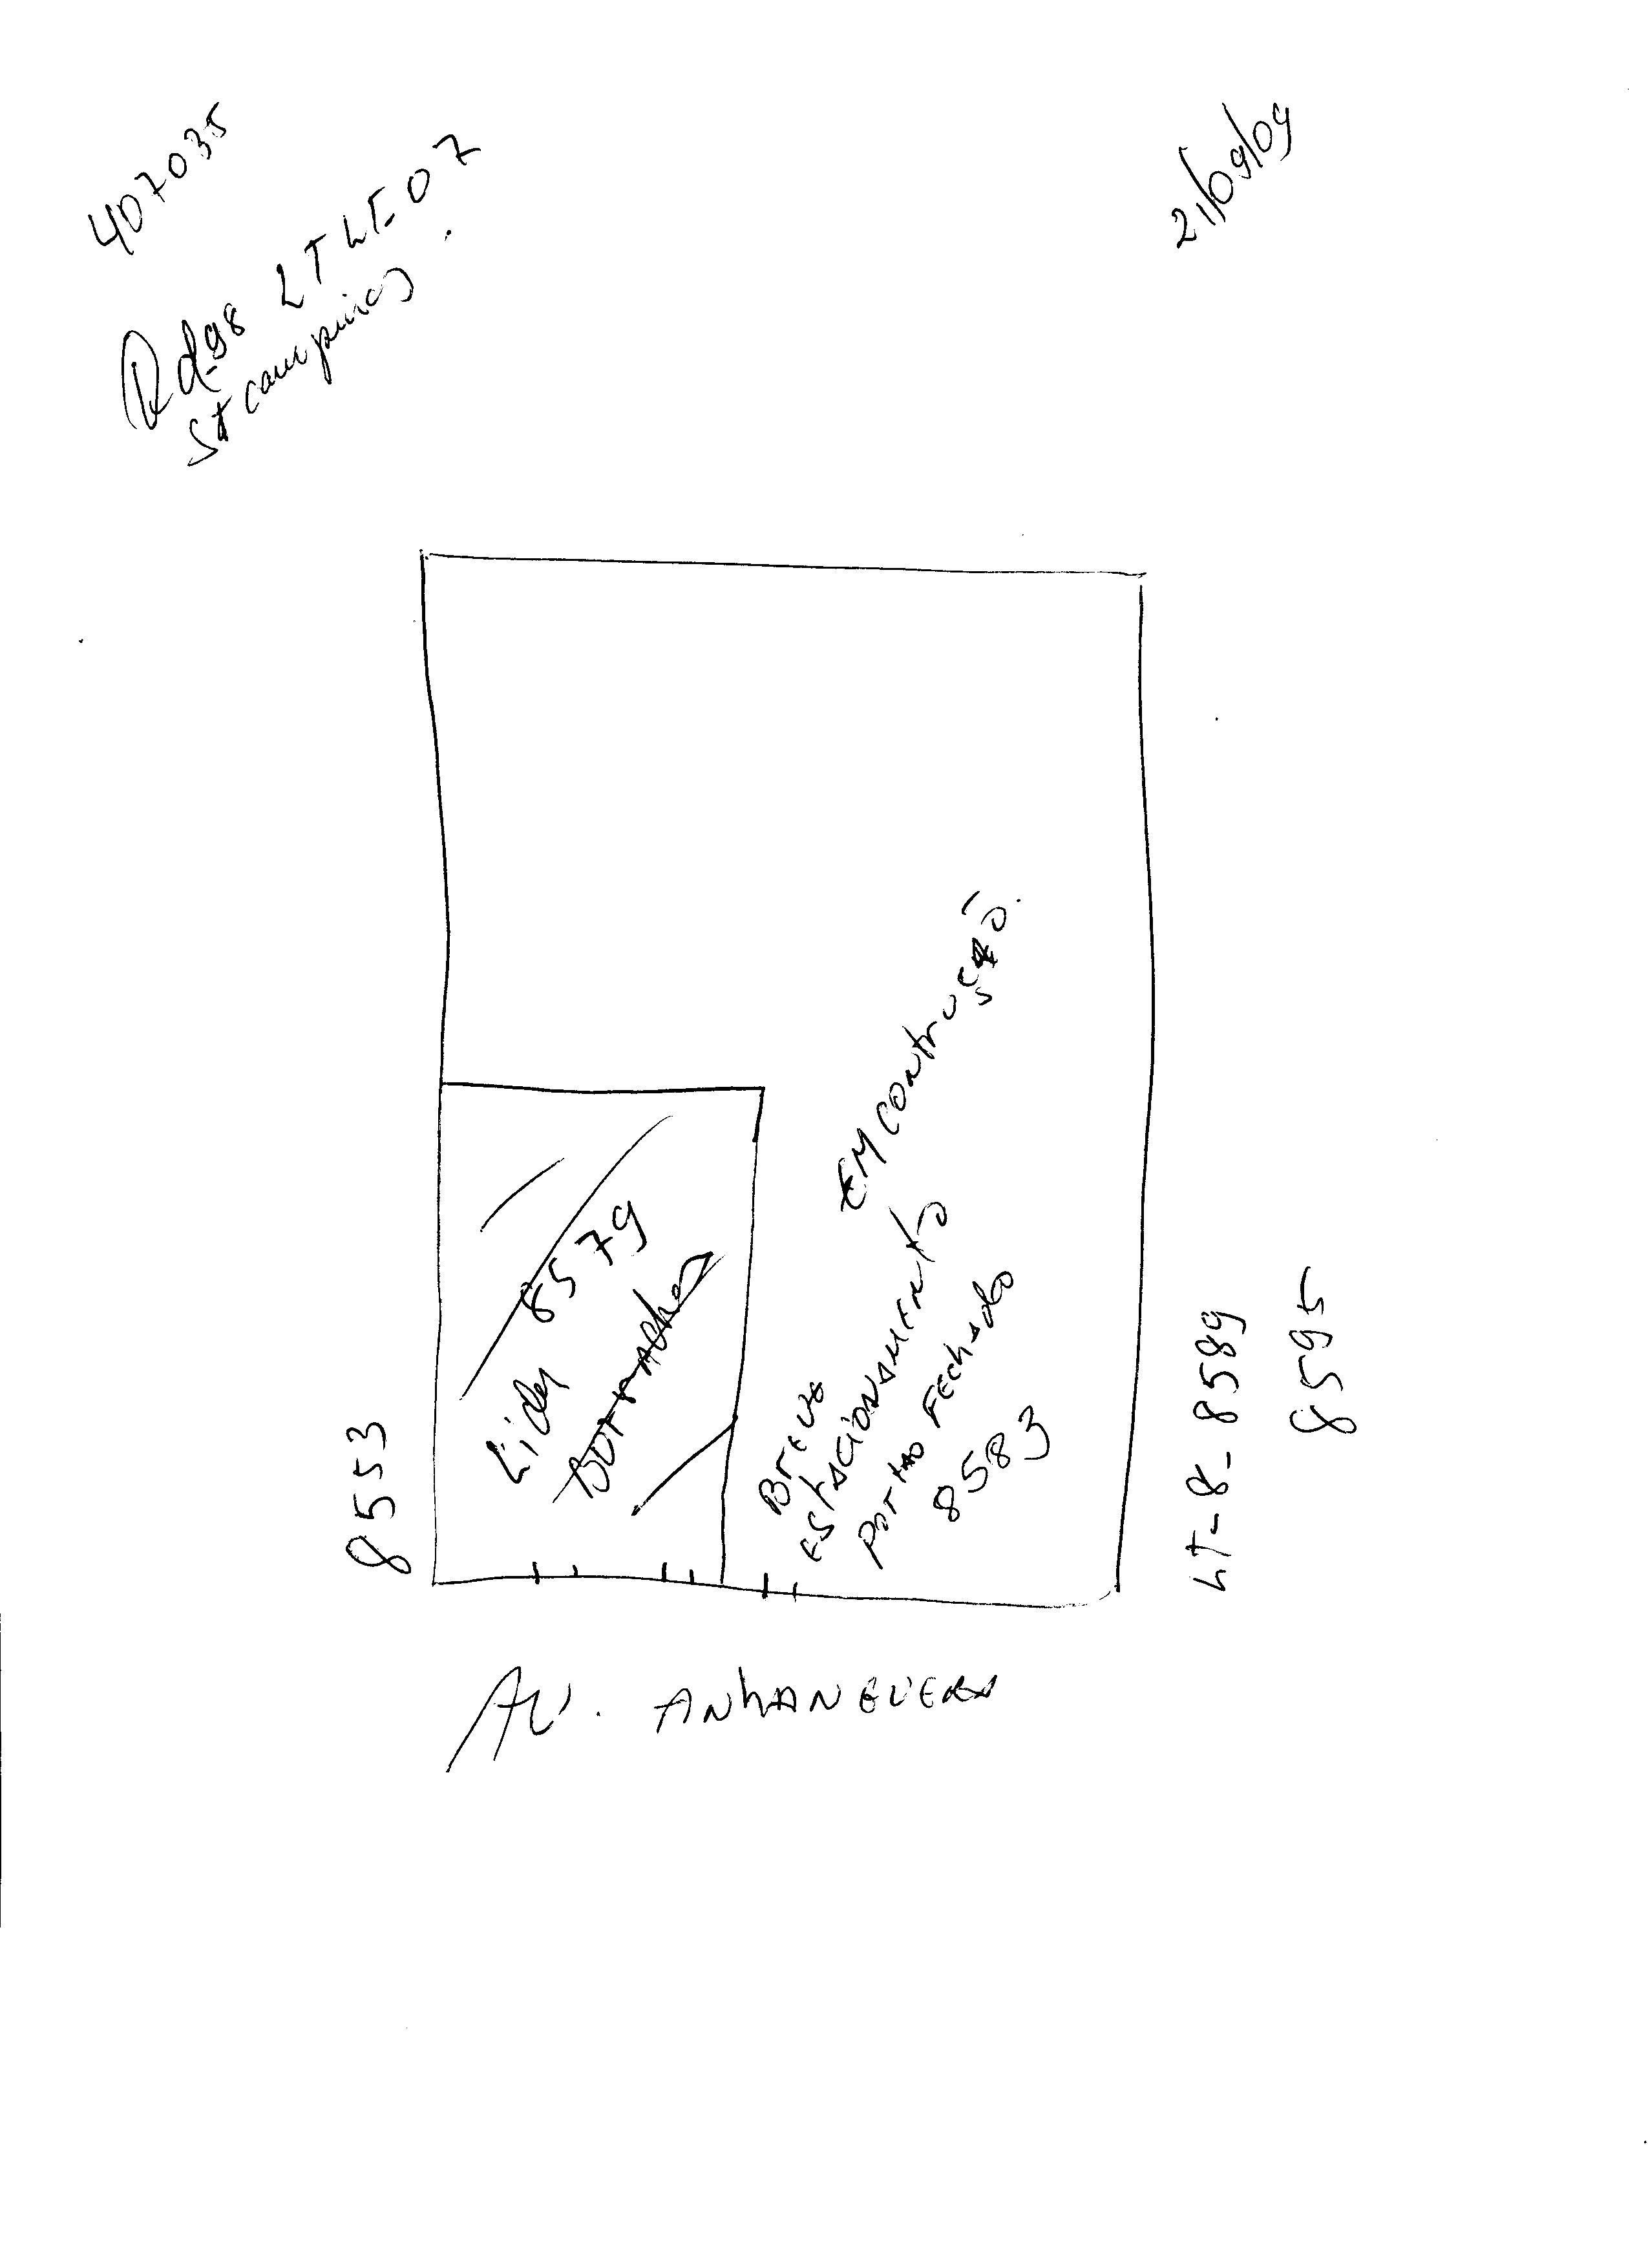 407035
21/09/09
Qd-98 LT LT-07
St campinas
EM Contrução.
8579
Lider
Borrachas
Breve
Estacionamento
portão Fechado
8583
8553
LT-8-8589
8595
Av. Anhanguera